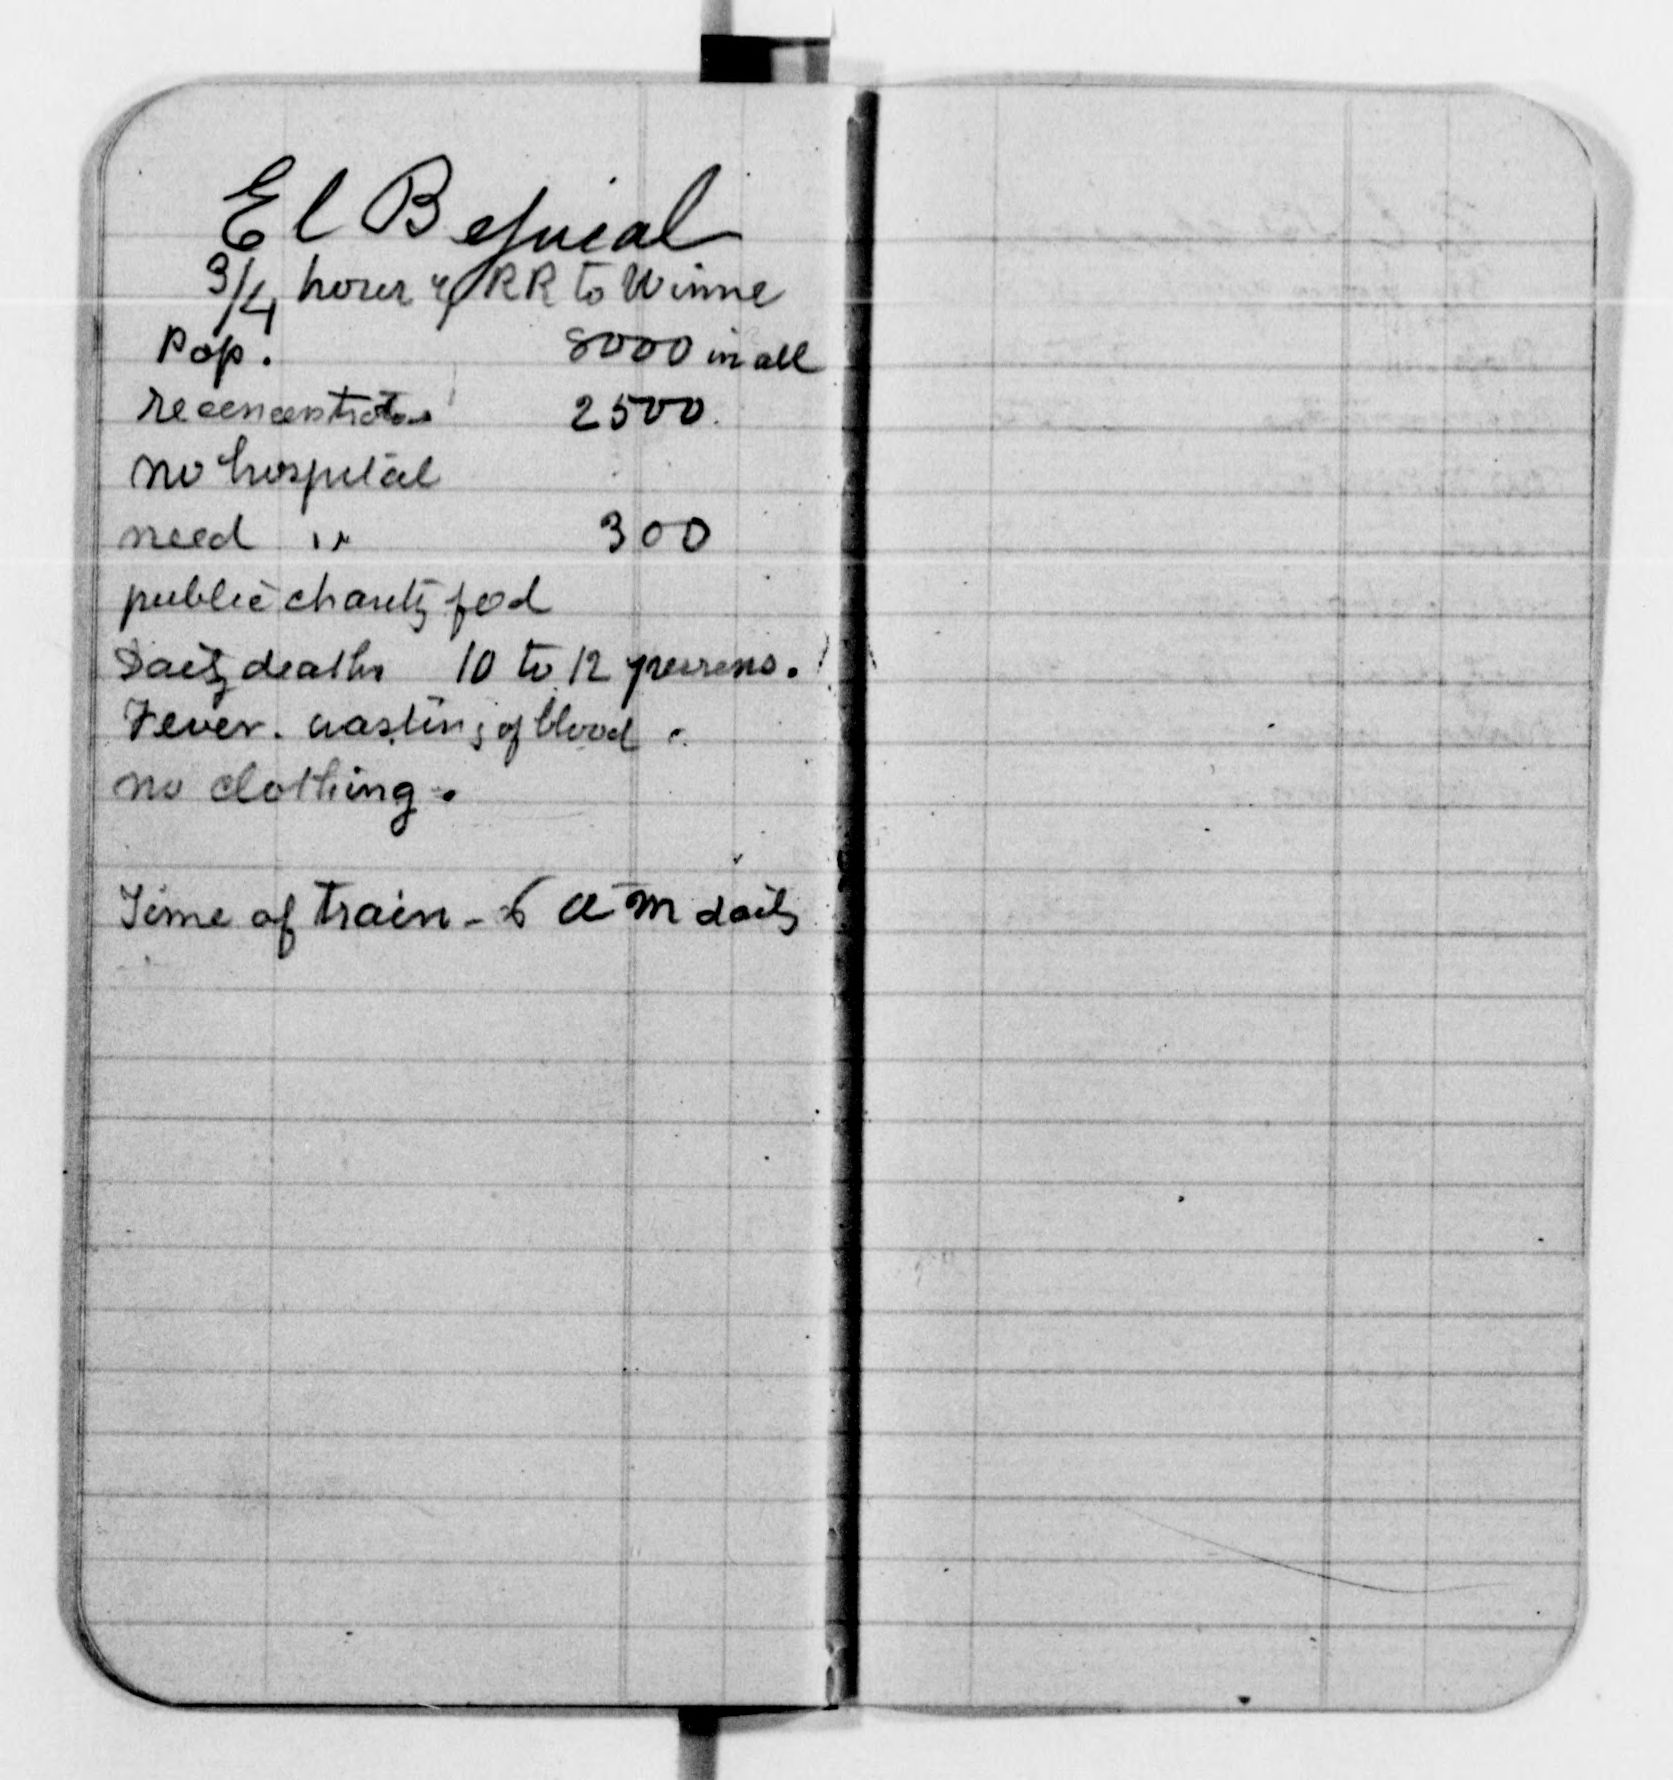 El Bejucal
3/4 hour of RR to Winne
Pop. 8000 in all
reconcentrados 2500
no hospital
need " 300
public charity food
Daily deaths 10 to 12 persons.
Fever. wasting of blood
no clothing.
Time of train - 6 A M daily